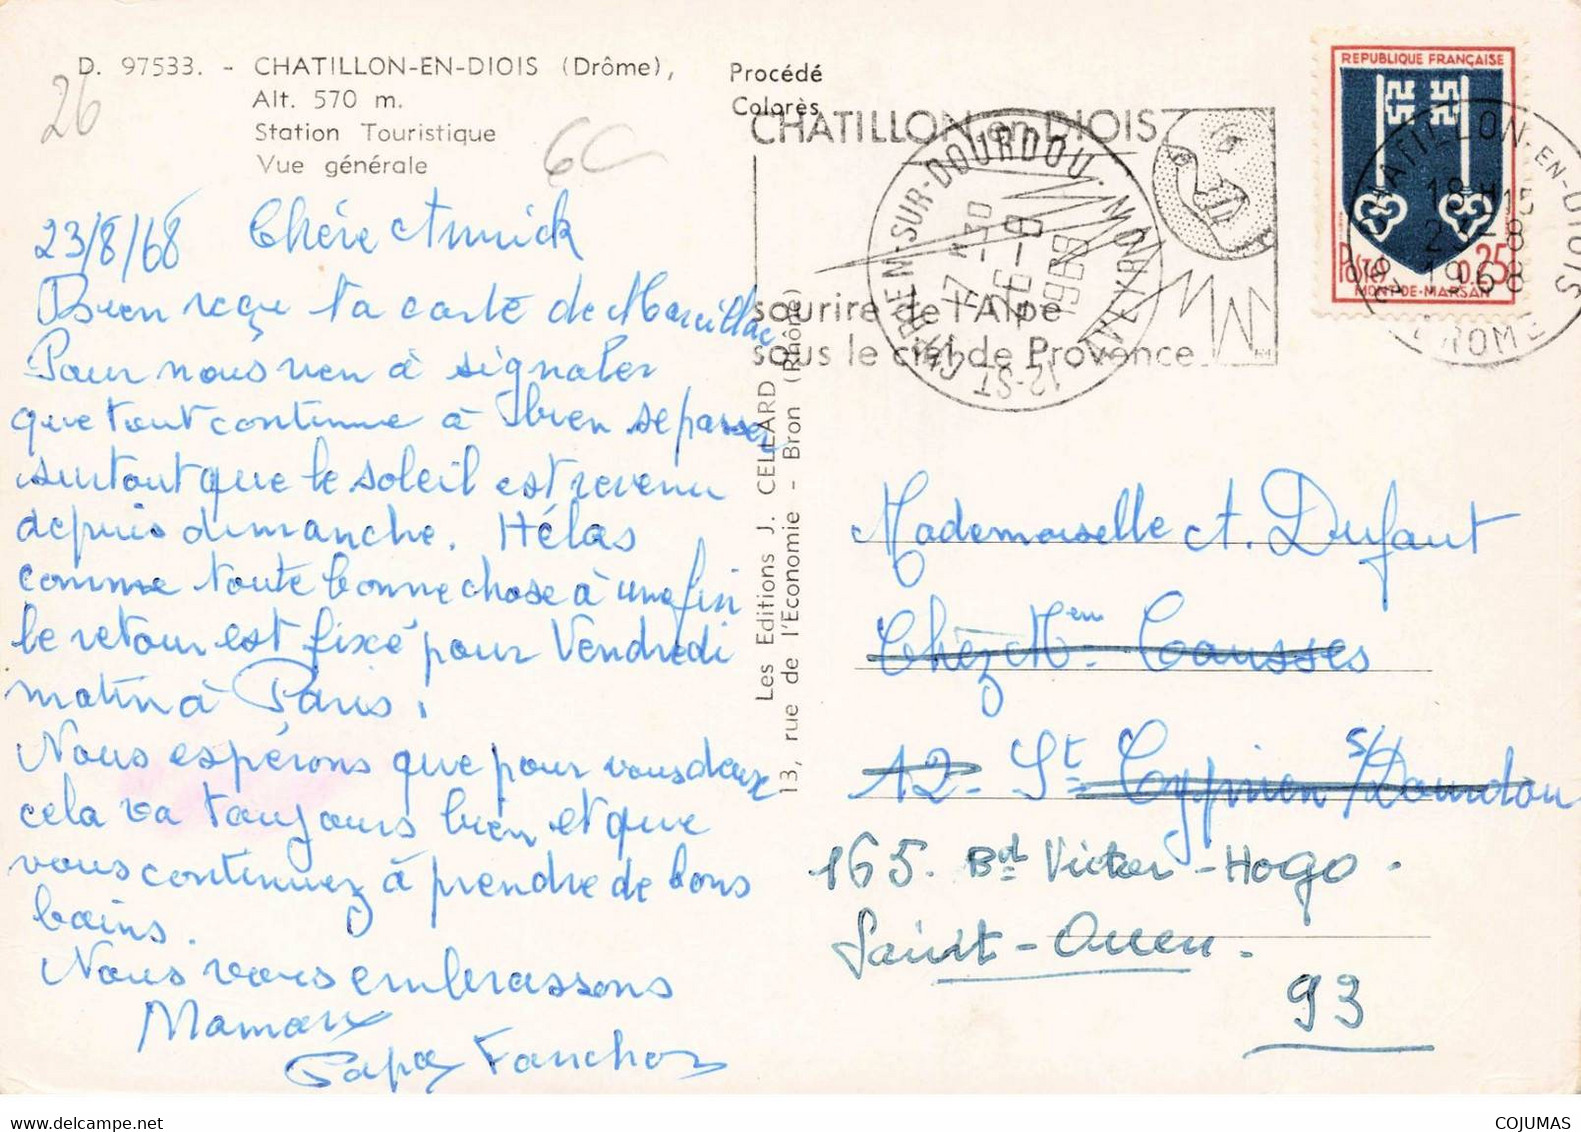 D. 97533. - CHATILLON-EN-DIOIS (Drôme),
Alt. 570 m.
Station Touristique
Vue générale
26
6C
Procédé
Colorès
23/8/68 Chère Annick
Bien reçu ta carte de Marcillac
Pour nous rien à signaler
que tout continue à bien se passer
surtout que le soleil est revenu
depuis dimanche. Hélas
comme toute bonne chose à une fin
le retour est fixé pour Vendredi
matin à Paris.
Nous espérons que pour vous deux
cela va toujours bien et que
vous continuez à prendre de bons
bains.
Nous vous embrassons
Maman
Papa Fanchon
Les Editions J. CELLARD
13, rue de l'Economie - Bron (Rhône)
CHATILLON en DIOIS
sourire de l'Alpe
sous le ciel de Provence
12-ST CYPRIEN-SUR-DOURDOU
AVEYRON
7H30
26-8
1968
REPUBLIQUE FRANÇAISE
POSTES 0,25
MONT-DE-MARSAN
CHATILLON-EN-DIOIS
18H15
1968
DROME
Mademoiselle A. Dufaut
Chez Mme Causses
12- St Cyprien s/ Dourdou
165. Bd Victor-Hogo.
Saint-Ouen.
93
COJUMAS